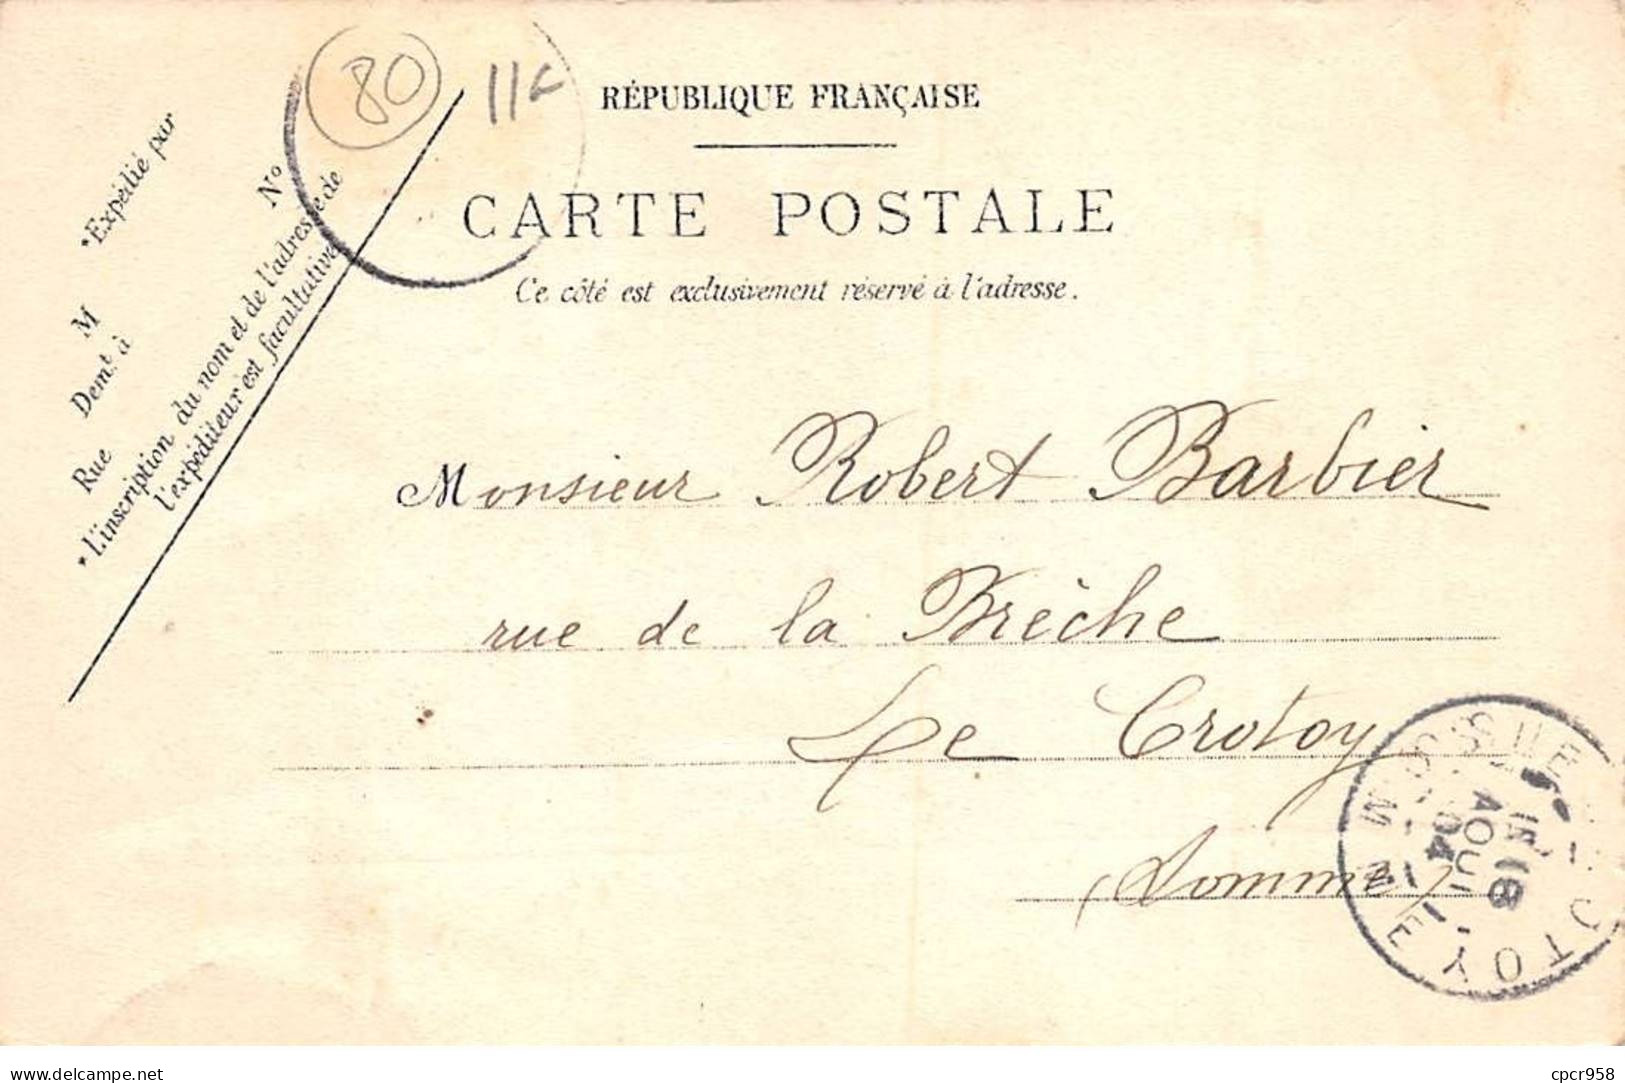 80
RÉPUBLIQUE FRANÇAISE
CARTE POSTALE
Ce côté est exclusivement réservé à l'adresse.
*Expédié par
N°
M
Demt. à
Rue
* L'inscription du nom et de l'adresse de
l'expéditeur est facultative
Monsieur Robert Barbier
rue de la Brèche
Le Crotoy
(Somme)
SOMME
18
AOUT
04
delcampe.net
cpcr958